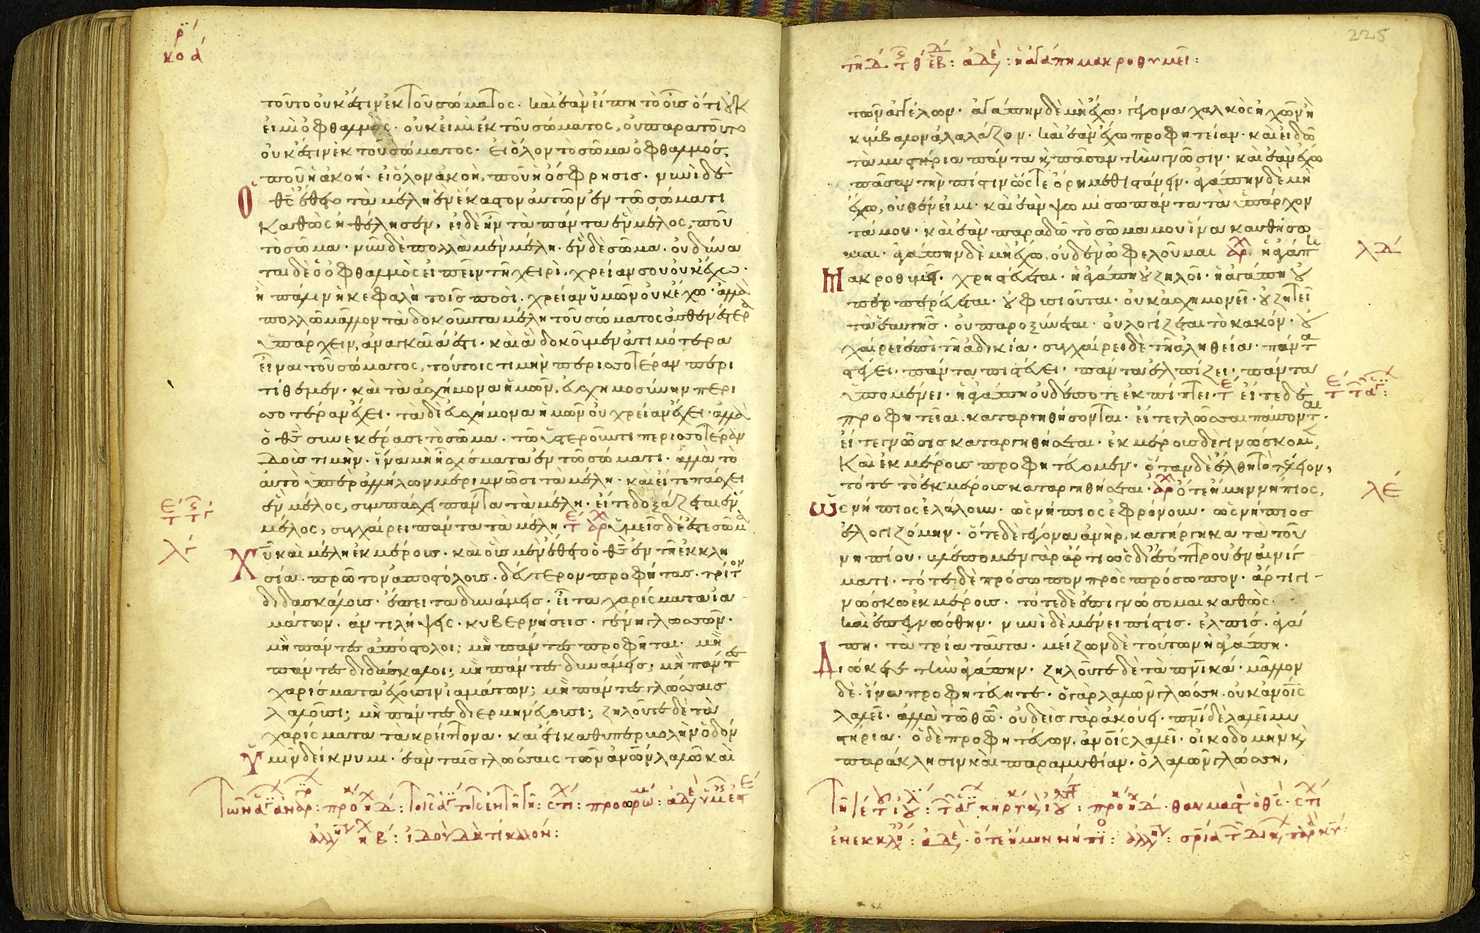 ρ
κοά
τοῦτο οὐκ ἔστιν ἐκ τοῦ σώματος· καὶ ἐὰν εἴπη τὸ οὖς ὅτι οὐκ
εἰμὶ ὀφθαλμός· οὐκ εἰμὶ ἐκ τοῦ σώματος, οὐ παρὰ τοῦτο
οὐκ ἔστιν ἐκ τοῦ σώματος· εἰ ὅλον τὸ σῶμα ὀφθαλμός,
ποῦ ἡ ἀκοή· εἰ ὅλον ἀκοή, ποῦ ἡ ὄσφρησις· νυνὶ δὲ
Ὁ θς ἔθετο τὰ μέλη ἓν ἕκαστον αὐτῶν ἐν τῶ σώματι
καθὼς ἠθέλησεν, εἰ δὲ ἦν τὰ πάντα ἓν μέλος, ποῦ
τὸ σῶμα· νῦν δὲ πολλὰ μὲν μέλη· ἓν δὲ σῶμα· οὐ δύνα
ται δὲ ὁ ὀφθαλμὸς εἰπεῖν τῆ χειρὶ· χρείαν σου οὐκ ἔχω·
ἢ πάλιν ἡ κεφαλὴ τοῖς ποσὶ· χρείαν ὑμῶν οὐκ ἔχω· ἀλλὰ
πολλῶ μᾶλλον τὰ δοκοῦντα μέλη τοῦ σώματος ἀσθενέστερα
ὑπάρχειν, ἀναγκαῖά ἐστι· καὶ ἃ δοκοῦμεν ἀτιμότερα
εἶναι τοῦ σώματος, τούτοις τιμὴν περισσοτέραν περι
τίθεμεν· καὶ τὰ ἀσχήμονα ἡμῶν, εὐσχημοσύνην περι
σσοτέραν ἔχει· τὰ δὲ εὐσχήμονα ἡμῶν οὐ χρείαν ἔχει· ἀλλὰ
ὁ θς συνεκέρασε τὸ σῶμα· τῶ ὑστεροῦντι περισσοτέραν
δοὺς τιμήν· ἵνα μὴ ᾖ σχίσματα ἐν τῶ σώματι· ἀλλὰ τὸ
αὐτὸ ὑπὲρ ἀλλήλων μεριμνῶσι τὰ μέλη· καὶ εἴτε πάσχει
ἓν μέλος, συμπάσχει πάντα τὰ μέλη· εἴτε δοξάζεται ἓν
μέλος, συγχαίρει πάντα τὰ μέλη· ὑμεῖς δέ ἐστε σῶμα
Χῦ καὶ μέλη ἐκ μέρους· καὶ οὓς μὲν ἔθετο ὁ θς ἐν τῆ ἐκκλη
σία· πρῶτον ἀποστόλους· δεύτερον προφήτας· τρίτον
διδασκάλους· ἔπειτα δυνάμεις· εἶτα χαρίσματα ἰα
μάτων· ἀντιλήψεις· κυβερνήσεις· γένη γλωσσῶν·
μὴ πάντες ἀπόστολοι; μὴ πάντες προφῆται· μὴ
πάντες διδάσκαλοι; μὴ πάντες δυνάμεις· μὴ πάντες
χαρίσματα ἔχουσιν ἰαμάτων; μὴ πάντες γλώσσαις
λαλοῦσι; μὴ πάντες διερμηνεύουσι; ζηλοῦτε δὲ τὰ
χαρίσματα τὰ κρείττονα· καὶ ἔτι καθ' ὑπερβολὴν ὁδὸν
Ὑμῖν δείκνυμι· ἐὰν ταῖς γλώσσαις τῶν ἀνων λαλῶ καὶ
λγ
τῶν ἀγγέλων· ἀγάπην δὲ μὴ ἔχω, γέγονα χαλκὸς ἠχῶν ἢ
κύμβαλον ἀλαλάζον· καὶ ἐὰν ἔχω προφητείαν· καὶ εἰδῶ
τὰ μυστήρια πάντα κ πᾶσαν τὴν γνῶσιν· καὶ ἐὰν ἔχω
πᾶσαν τὴν πίστιν ὥστε ὄρη μεθιστάνειν· ἀγάπην δὲ μὴ
ἔχω, οὐθέν εἰμι· καὶ ἐὰν ψωμίσω πάντα τὰ ὑπάρχον
τά μου· καὶ ἐὰν παραδῶ τὸ σῶμά μου ἵνα καυθήσω
μαι· ἀγάπην δὲ μὴ ἔχω, οὐδὲν ὠφελοῦμαι ἡ ἀγάπη
Μακροθυμεῖ· χρηστεύεται· ἡ ἀγάπη οὐ ζηλοῖ· ἡ ἀγάπη οὐ
περπερεύεται· οὐ φυσιοῦται· οὐκ ἀσχημονεῖ· οὐ ζητεῖ
τὰ ἑαυτῆς· οὐ παροξύνεται· οὐ λογίζεται τὸ κακόν· οὐ
χαίρει ἐπὶ τῆ ἀδικία· συγχαίρει δὲ τῆ ἀληθεία· πάντα
στέγει· πάντα πιστεύει· πάντα ἐλπίζει· πάντα
ὑπομένει· ἡ ἀγάπη οὐδέποτε ἐκπίπτει· εἴτε δὲ
προφητεῖαι, καταργηθήσονται· εἴτε γλῶσσαι παύσονται·
εἴτε γνῶσις καταργηθήσεται· ἐκ μέρους δὲ γινώσκομεν
καὶ ἐκ μέρους προφητεύομεν· ὅταν δὲ ἔλθη τὸ τέλειον,
τότε τὸ ἐκ μέρους καταργηθήσεται· ὅτε ἤμην νήπιος,
Ὡς νήπιος ἐλάλουν· ὡς νήπιος ἐφρόνουν· ὡς νήπιος
ἐλογιζόμην· ὅτε δὲ γέγονα ἀνήρ, κατήργηκα τὰ τοῦ
νηπίου· βλέπομεν γὰρ ἄρτι ὡς δι' ἐσόπτρου ἐν αἰνίγ
ματι· τότε δὲ πρόσωπον πρὸς πρόσωπον· ἄρτι γι
νώσκω ἐκ μέρους· τότε δὲ ἐπιγνώσομαι καθὼς
καὶ ἐπεγνώσθην· νυνὶ δὲ μένει πίστις· ἐλπίς· ἀγά
πη· τὰ τρία ταῦτα· μείζων δὲ τούτων ἡ ἀγάπη·
Διώκετε τὴν ἀγάπην· ζηλοῦτε δὲ τὰ πνικὰ· μᾶλλον
δὲ· ἵνα προφητεύητε· ὁ γὰρ λαλῶν γλώσση· οὐκ ἀνοις
λαλεῖ· ἀλλὰ τῶ θῶ· οὐδεὶς γὰρ ἀκούει· πνι δὲ λαλεῖ μυ
στήρια· ὁ δὲ προφητεύων, ἀνοις λαλεῖ· οἰκοδομὴν κ
παράκλησιν καὶ παραμυθίαν· ὁ λαλῶν γλώσση,
225
ἡ ἀγάπη μακροθυμεῖ:
λδ
λε